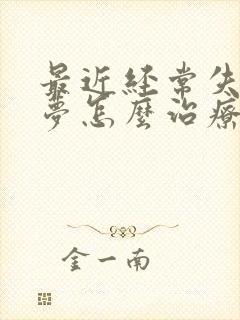 最近経常失
夢怎麼治療
金一南